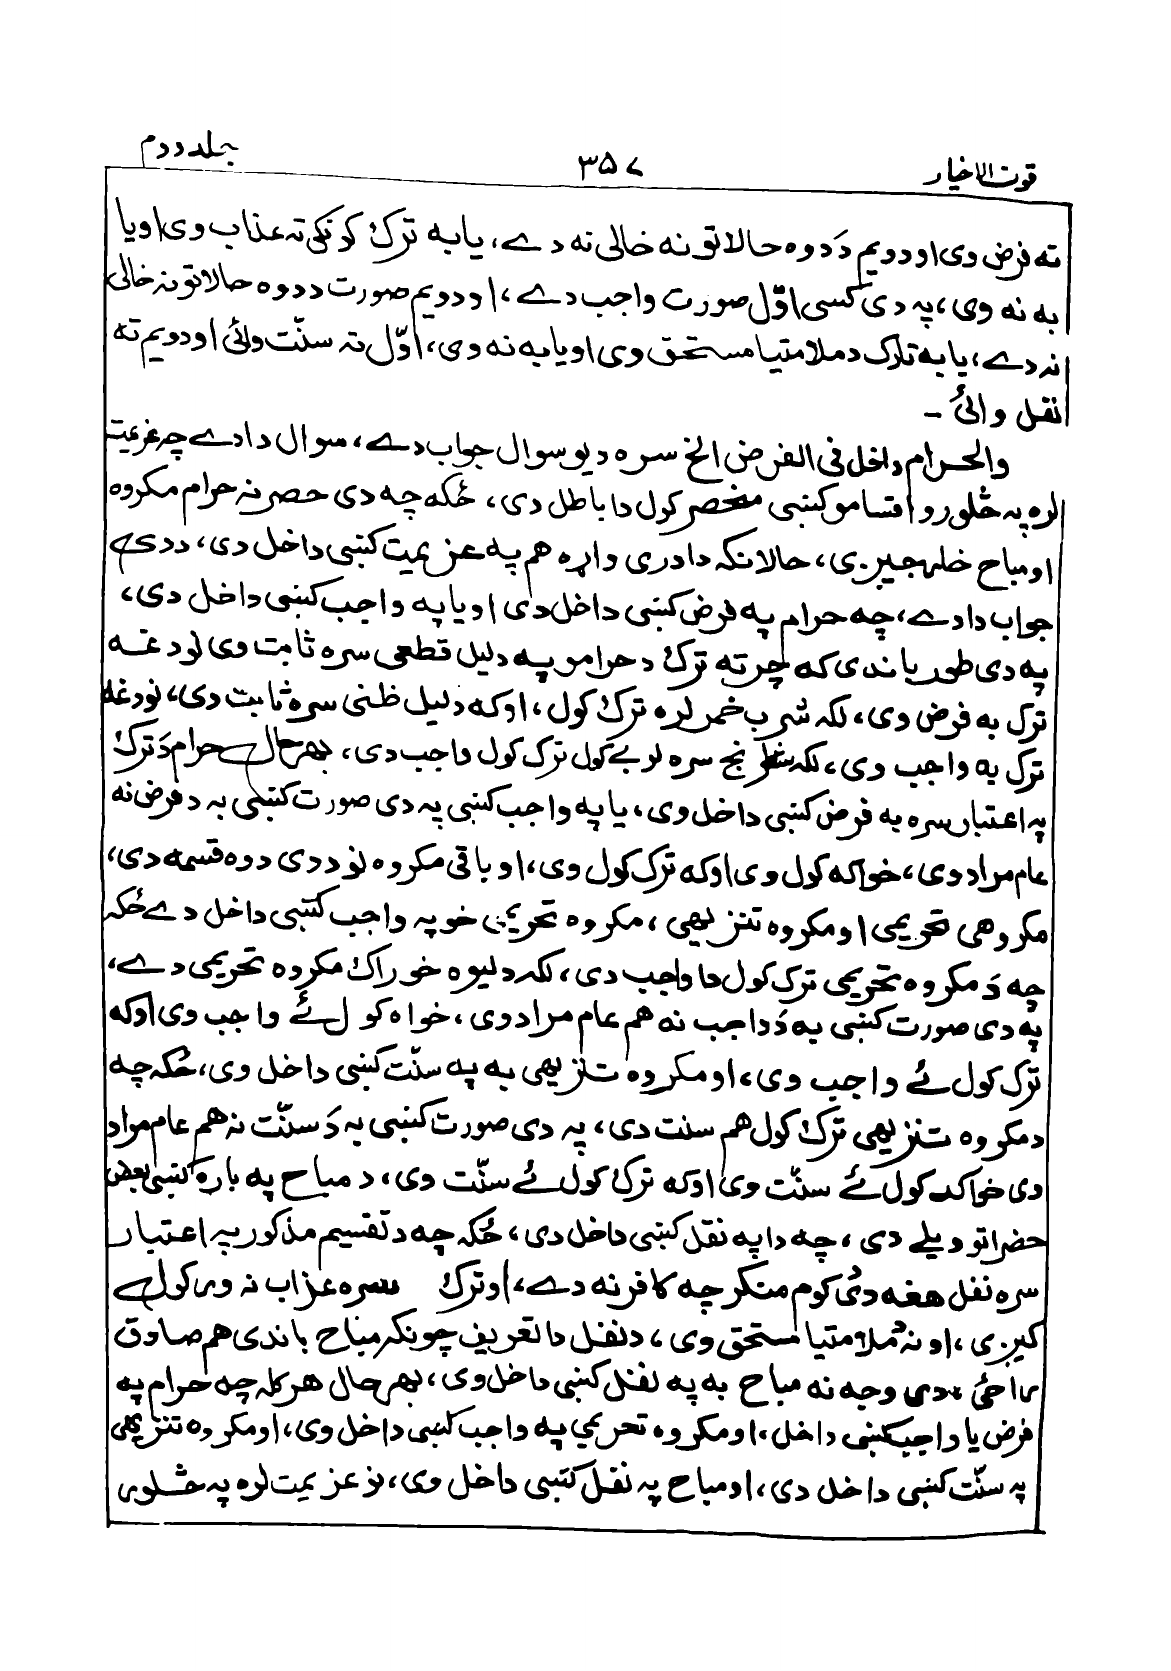 قوت الاخیار ۳۵۷ جلد دوم
ته فرض وی او دویم دَ دوه حالاتو نه خالی نه دے، یا به ترک کونکی ته عذاب وی او یا
به نه وی، په دی کښی اوّل صورت واجب دے، او دویم صورت د دوه حالاتو نه خالی
نه دے، یا به تارک د ملامتیا مستحق وی او یا به نه وی، اوّل ته سنّت وائی او دویم ته
نفل وائی ـ
والحرام داخل فی الفرض الخ سره د یو سوال جواب دے، سوال دا دے چه عزیمت
لره په څلورو اقسامو کښی منحصر کول دا باطل دی، ځکه چه دی حصر نه حرام مکروه
او مباح خلہ جیږی، حالانکه دا دری واړه هم په عزیمت کښی داخل دی، ددی
جواب دا دے، چه حرام په فرض کښی داخل دی او یا په واجب کښی داخل دی،
په دی طور باندی که چرته ترک د حرامو په دلیل قطعی سره ثابت وی نو دغه
ترک به فرض وی، لکه شرب خمر لره ترک کول، او که دلیل ظنی سره ثابت دی، نو دغه
ترک به واجب وی، لکه شطرنج سره لوبے کول ترک کول واجب دی، بهر حال حرام دَ ترک
په اعتبار سره به فرض کښی داخل وی، یا په واجب کښی په دی صورت کښی به د فرض نه
عام مراد وی، خواکه کول وی او که ترک کول وی، او باقی مکروه نو ددی دوه قسمه دی،
مکروهی تحریمی او مکروه تنزیهی، مکروه تحریمی خو په واجب کښی داخل دے ځکه
چه دَ مکروه تحریمی ترک کول دا واجب دی، لکه د لیوه خوراک مکروه تحریمی دے،
په دی صورت کښی به دَ واجب نه هم عام مراد وی، خواه کول ئے واجب وی او که
ترک کول ئے واجب وی، او مکروه تنزیهی به په سنّت کښی داخل وی، ځکه چه
د مکروه تنزیهی ترک کول هم سنت دی، په دی صورت کښی به دَ سنّت نه هم عام مراد
وی خواکه کول ئے سنّت وی او که ترک کول ئے سنّت وی، د مباح په باره کښی بعض
حضراتو ویلے دی، چه دا په نفل کښی داخل دی، ځکه چه د تقسیم مذکور په اعتبار
سره نفل هغه دی کوم منکر چه کافر نه دے، او ترک سره عذاب نه ورکولے
کیږی، او نه د ملامتیا مستحق وی، د نفل دا تعریف چونکه مباح باندی هم صادق
راځی، دی وجه نه مباح به په نفل کښی داخل وی، بهر حال هر کله چه حرام په
فرض یا واجب کښی داخل، او مکروه تحریمی په واجب کښی داخل وی، او مکروه تنزیهی
په سنّت کښی داخل دی، او مباح په نفل کښی داخل وی، نو عزیمت لره په څلوری